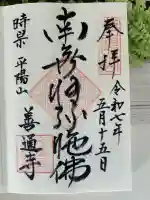 奉拝
令和七年
五月十五日
南無阿弥陀佛
平陽山
善通寺